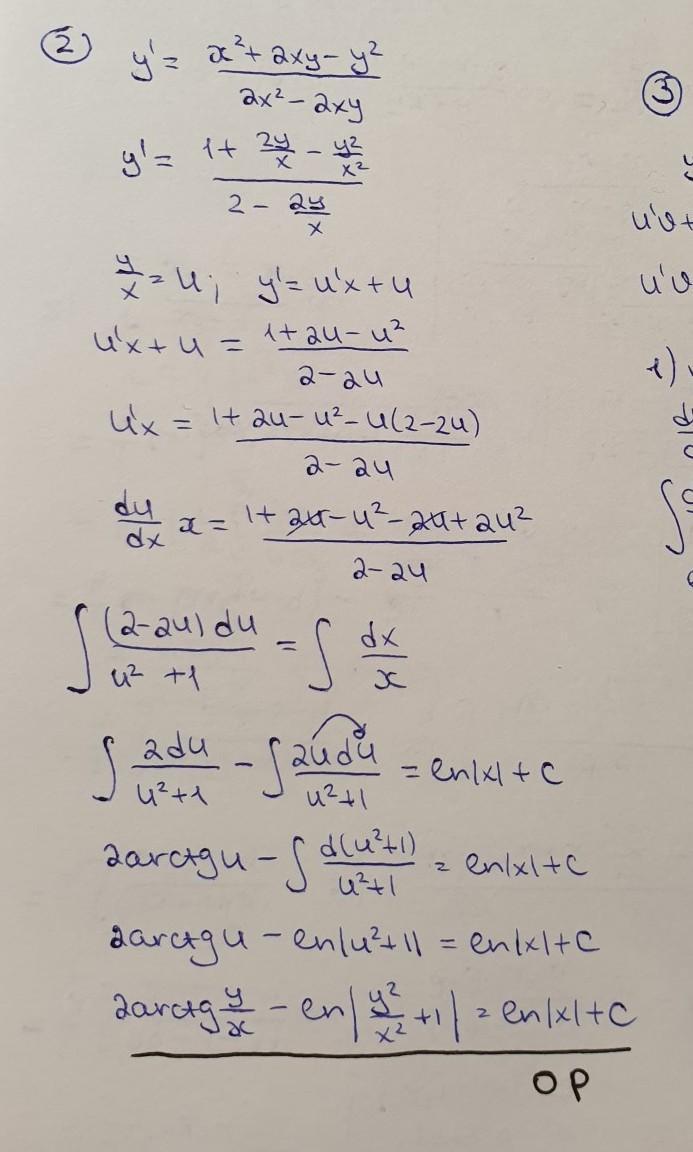 ② y' = (x² + 2xy - y²)/(2x² - 2xy)
③
y' = (1 + 2y/x - y²/x²)/(2 - 2y/x)
y/x = u; y' = u'x + u
u'v+
u'x + u = (1 + 2u - u²)/(2 - 2u)
u'v
1)
u'x = (1 + 2u - u² - u(2 - 2u))/(2 - 2u)
du/dx x = (1 + 2u - u² - 2u + 2u²)/(2 - 2u)
∫ (2-2u) du/(u² + 1) = ∫ dx/x
∫ 2du/(u²+1) - ∫ 2u du/(u²+1) = ln|x| + C
2arctg u - ∫ d(u²+1)/(u²+1) = ln|x| + C
2arctg u - ln|u²+1| = ln|x| + C
2arctg y/x - ln|y²/x² + 1| = ln|x| + C
OP